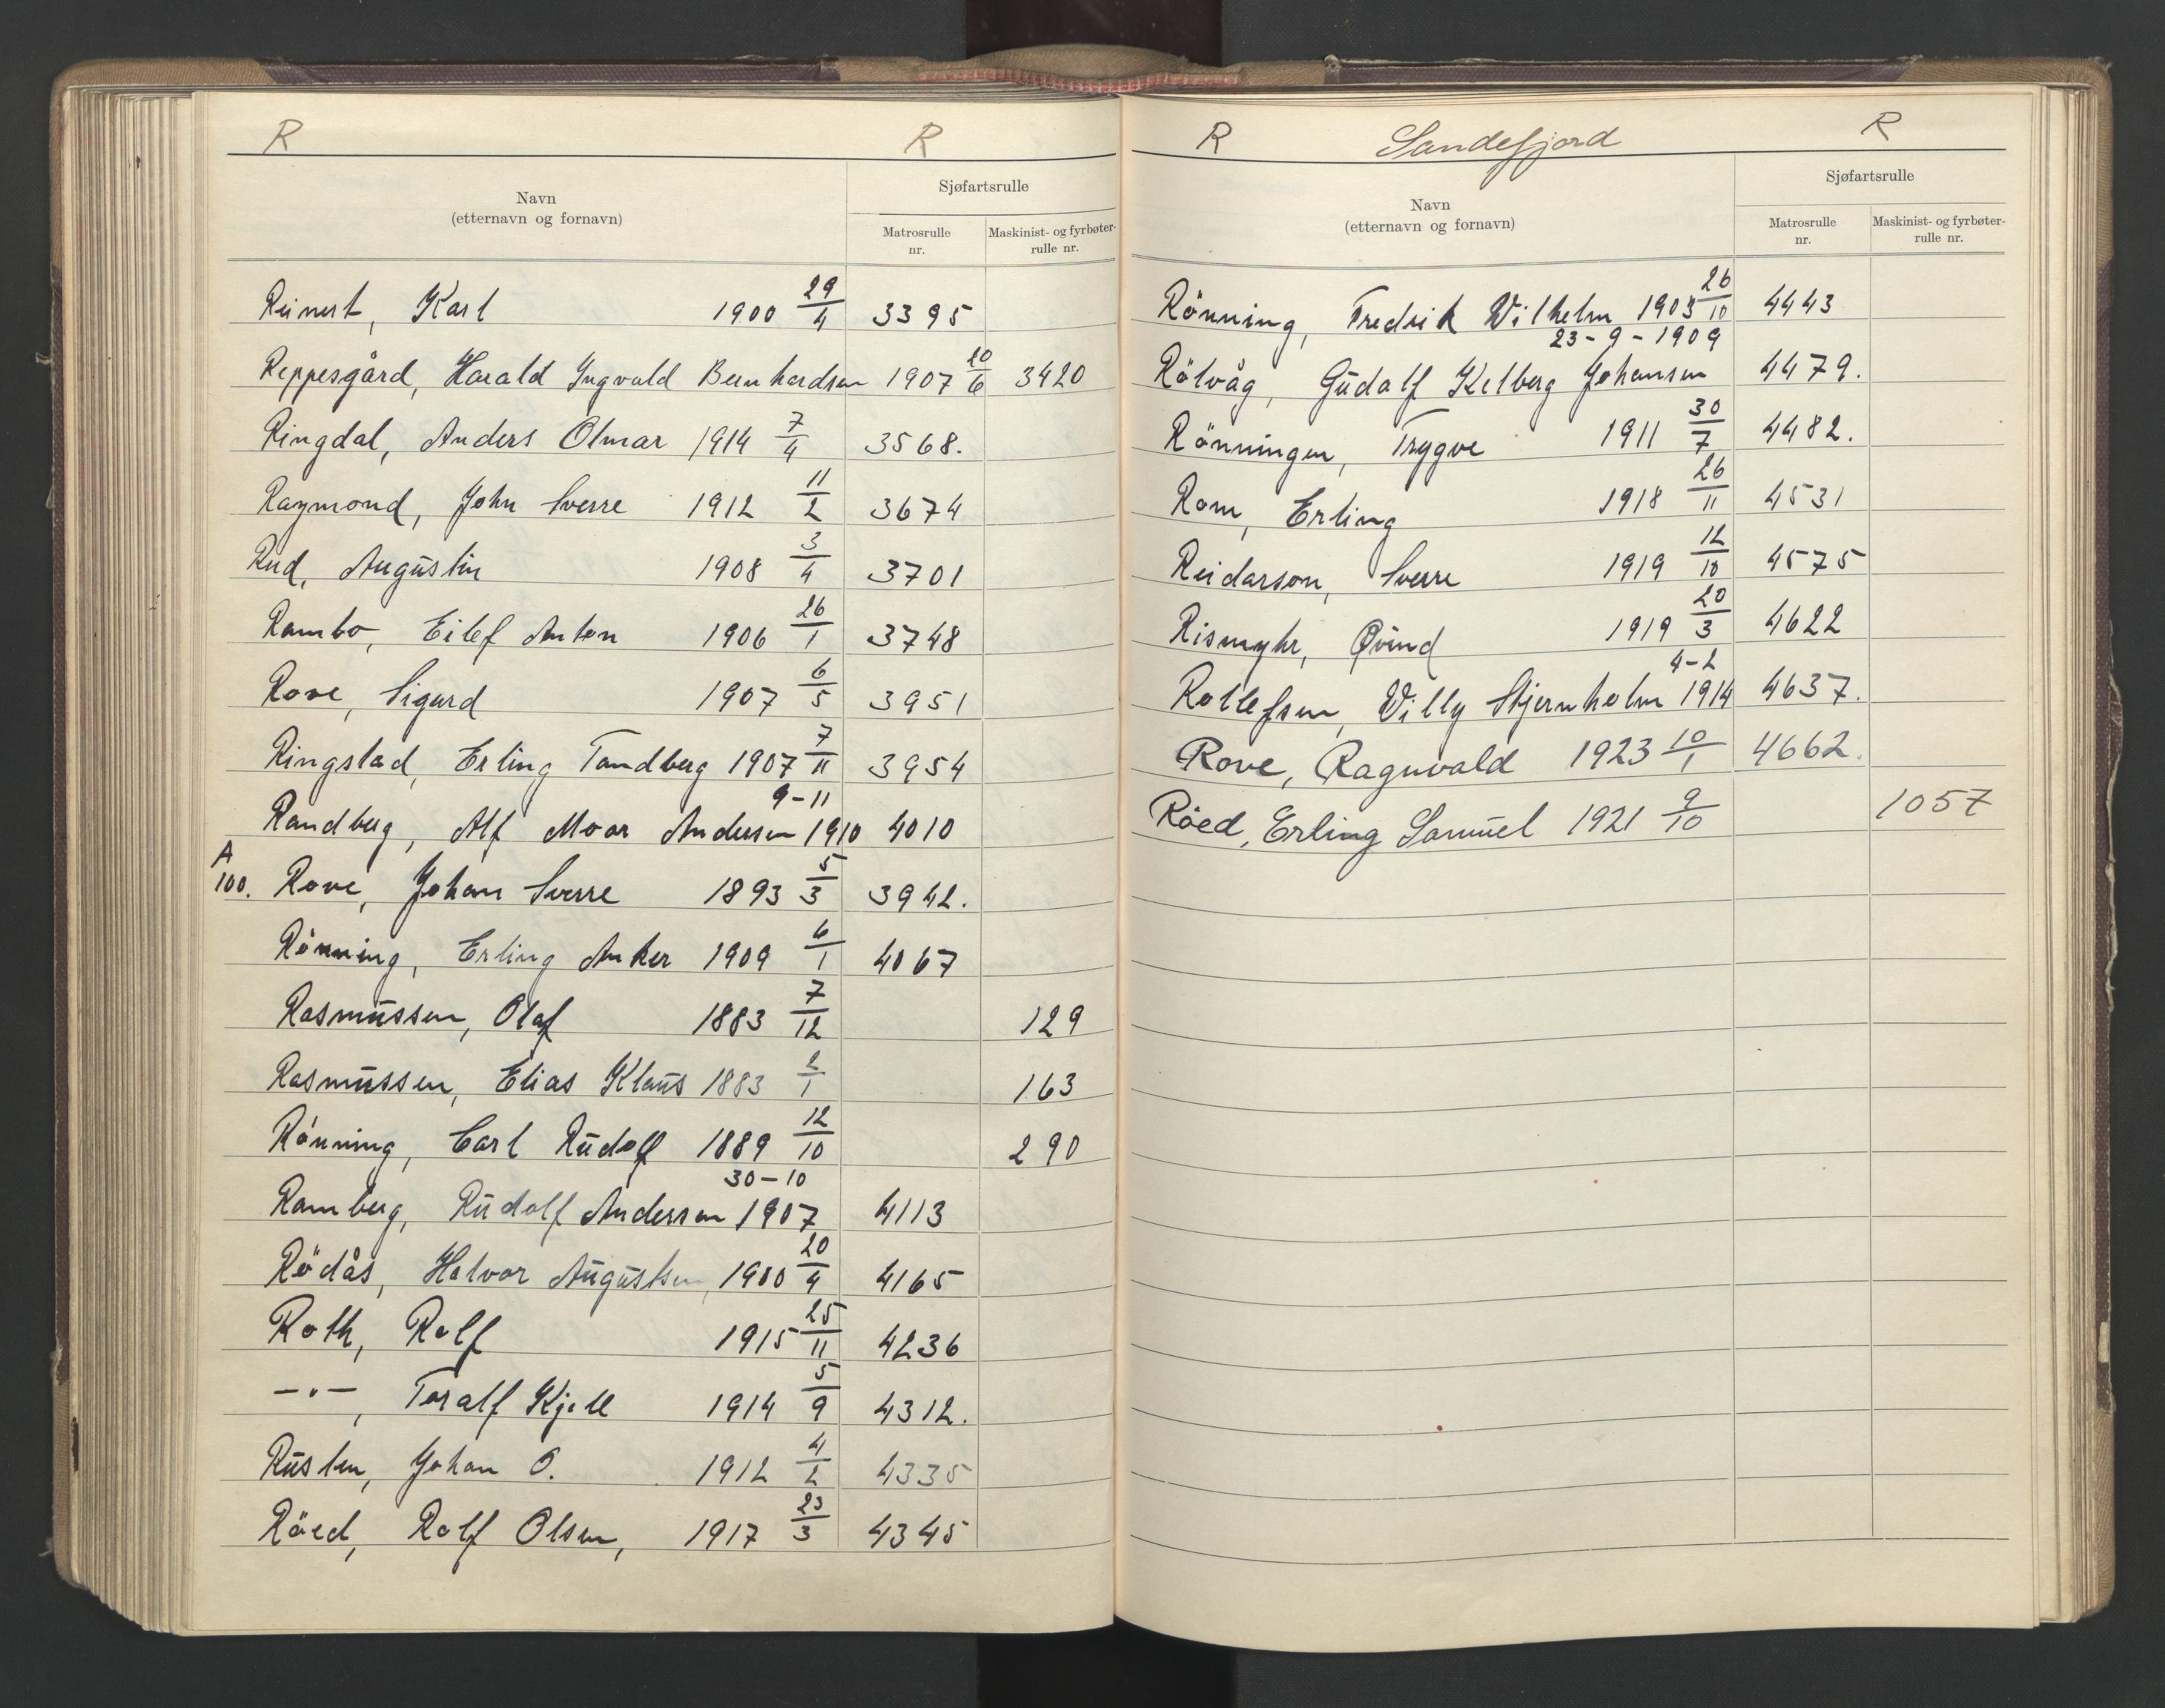 R R
Sjøfartsrulle
Navn
(etternavn og fornavn)
Matrosrulle nr.
Maskinist- og fyrbøter-rulle nr.
Reinert, Karl 1900 29/4 3395
Reppesgård, Harald Ingvald Bernhardsen 1907 20/6 3420
Ringdal, Anders Olmar 1914 7/4 3568.
Raymond, John Sverre 1912 11/2 3674
Rud, Augustin 1908 3/4 3701
Rambo, Eilef Anton 1906 26/1 3748
Rove, Sigurd 1907 6/5 3951
Ringstad, Erling Tandberg 1907 7/11 3954
9-11
Randberg, Alf Moar Andersen 1910 4010
A 100. Rove, Johan Sverre 1893 5/3 3942.
Rönning, Erling Anker 1909 6/1 4067
Rasmussen, Olaf 1883 7/12 129
Rasmussen, Elias Klaus 1883 2/1 163
Rönning, Carl Rudolf 1889 12/10 290
30-10
Ramberg, Rudolf Andersen 1907 4113
Rödås, Halvor Augustsen, 1900 20/4 4165
Roth, Rolf 1915 25/11 4236
-"-, Toralf Kjell 1914 5/9 4312.
Rusten, Johan O. 1912 4/2 4335
Röed, Rolf Olsen, 1917 23/3 4345
R Sandefjord R
Sjøfartsrulle
Navn
(etternavn og fornavn)
Matrosrulle nr.
Maskinist- og fyrbøter-rulle nr.
Rönning, Fredrik Wilhelm 1903 26/10 4443
23-9-1909
Rölvåg, Gudalf Kelberg Johansen 4479.
Rönningen, Trygve 1911 30/7 4482.
Rom, Erling 1918 26/11 4531
Reidarson, Sverre 1919 12/10 4575
Rismyhr, Øvind 1919 20/3 4622
4-2
Rollefsen, Willy Stjernholm 1914 4637.
Rove, Ragnvald 1923 10/1 4662.
Röed, Erling Samuel 1921 9/10 1057